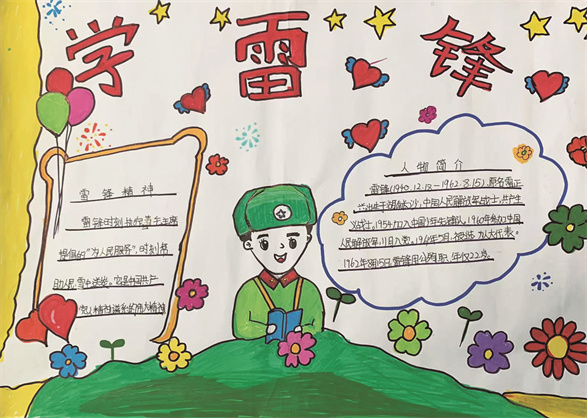 学雷锋
雷锋精神
雷锋时刻按照毛主席
提倡的“为人民服务”,时刻帮
助人民,雪中送炭。它是中国共产
党人精神谱系的伟大精神
人物简介
雷锋(1940.12.18-1962.8.15),原名雷正
兴出生于湖南长沙,中国人民解放军战士,共产主
义战士,1954加入中国少年先锋队,1960年参加中国
人民解放军,11月入党,1961年 月,被选为人大代表。
1962年8月15日雷锋因公殉职,年仅22岁。